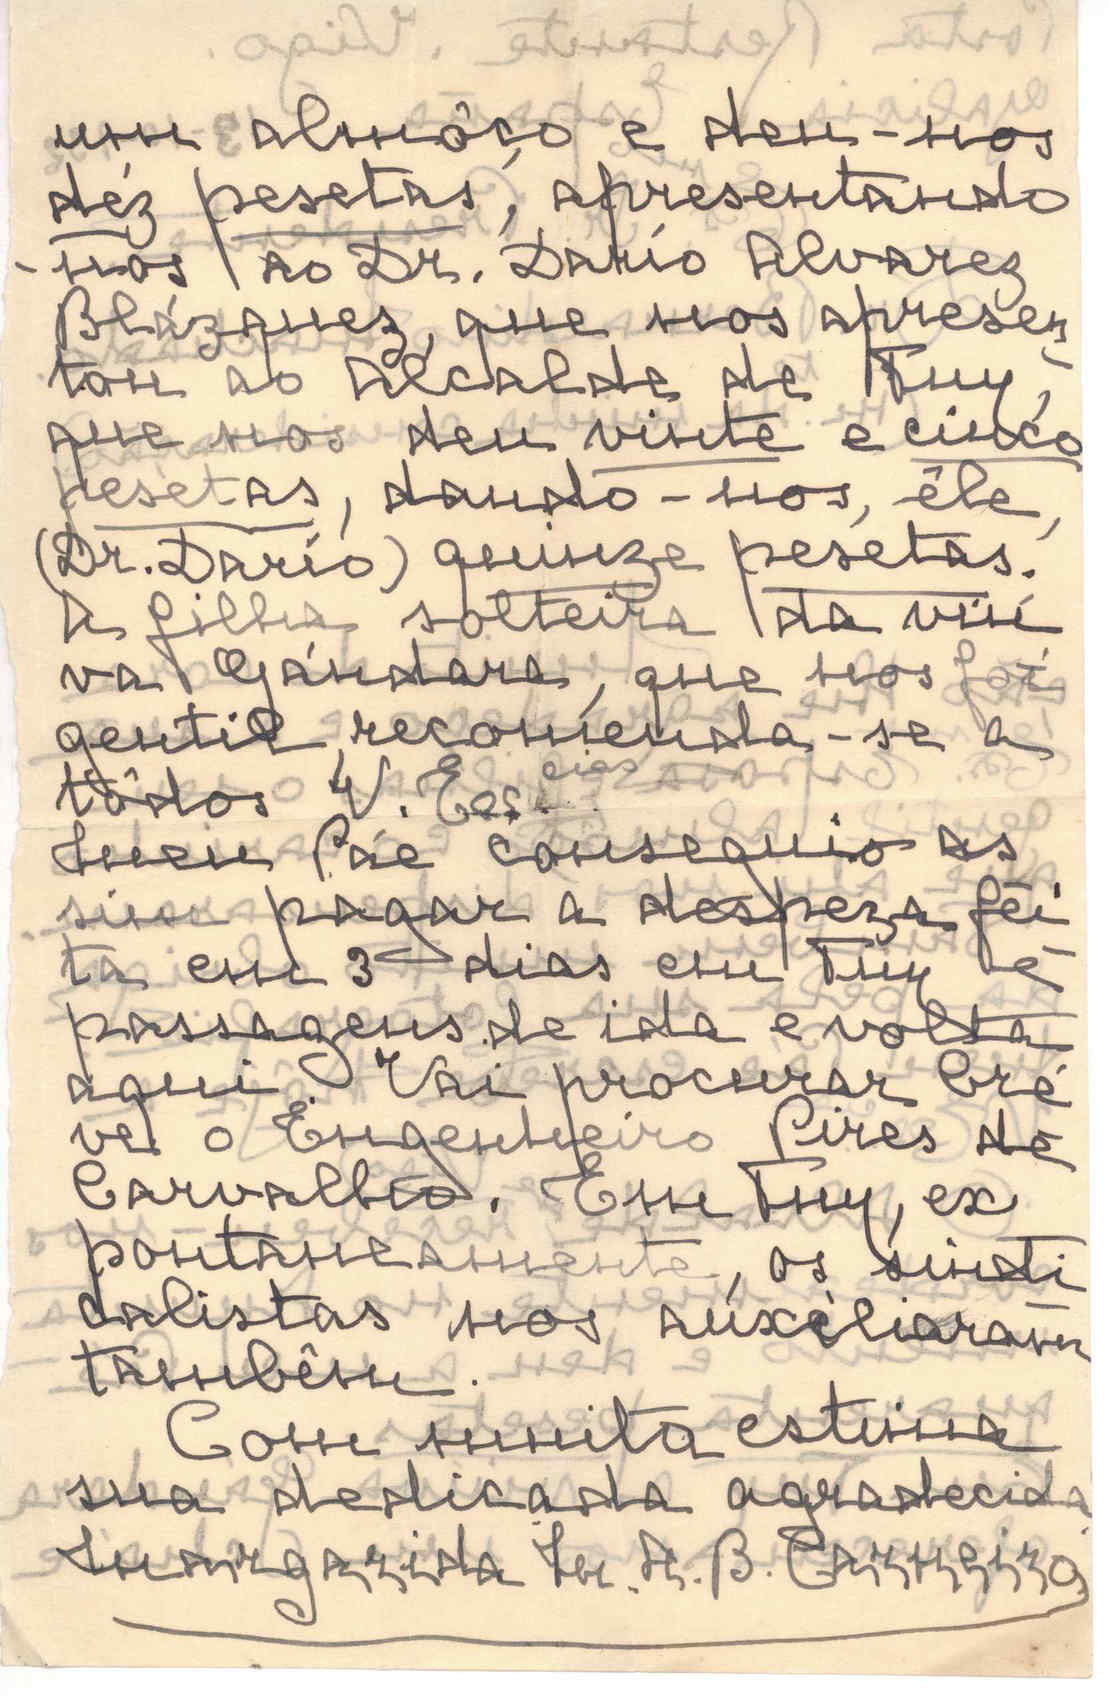 um almôço e deu-nos
déz pesetas, apresentando
-nos ao Dr. Darío Alvarez
Blázquez, que nos apresen
tou ao Alcalde de Tuy,
que nos deu vinte e cinco
pesetas, dando-nos, êle,
(Dr. Darío) quinze pesetas.
A filha solteira da viú
va Gándara, que nos foi
gentil, recomenda-se a
tôdos V. Exs. cias
Meu Páe conseguio as
sim pagar a despeza fei
ta em 3 dias em Tuy e
passagens de ida e volta
aqui. Vai procurar bré
ve o Engenheiro Pires de
Carvalho. Em Tuy, ex
pontaneamente, os sindi
calistas nos auxiliaram
também.
Com muita estima
sua dedicada agradecida
Margarida M. A. B. Carneiro